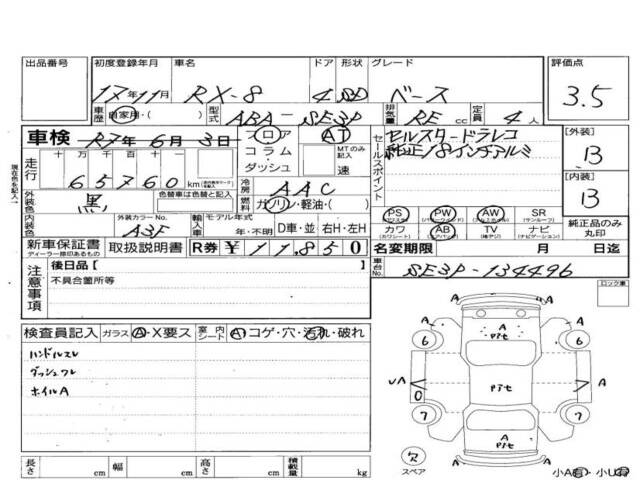 出品番号 初度登録年月 車名 ドア 形状 グレード 評価点
17年11月 RX-8 4 SD ベース 3.5
車歴 自家用・( ) 型式 ABA-SE3P 排気量 RE cc 定員 4人
車検 R7年6月3日 フロア コラム ダッシュ AT MTのみ記入 速
走行 十万 万 千 百 十 65760 km
セールスポイント セルスタードラレコ
純正18インチアルミ
[外装] B
[内装] B
冷房 AAC
外装色 黒 色替車は色替と記入
燃料 ガソリン・軽油・( )
外装カラーNo. A3F
内装色
輸入車 モデル年式 年・不明 D車・並 右H・左H
PS PW AW SR (サンルーフ)
カワ (カワシート) AB (エアバッグ) TV ナビ (ナビゲーション)
純正品のみ丸印
新車保証書 ディーラー捺印あるもの 取扱説明書 R券 ¥11,850
名変期限 月 日迄
車台No. SE3P-134496
現在色を記入
注意事項 後日品[ ]
不具合箇所等
ロック車
検査員記入 ガラス A・X要ス 室内シート A コゲ・穴・汚れ・破れ
ハンドルスレ
ダッシュワレ
ホイルA
A
Pアセ
6 6
UA A
0
Pアセ
7 7
A
Pアセ
A
欠
スペア
小A有・小U有
長さ cm 幅 cm 高さ cm 積載量 kg